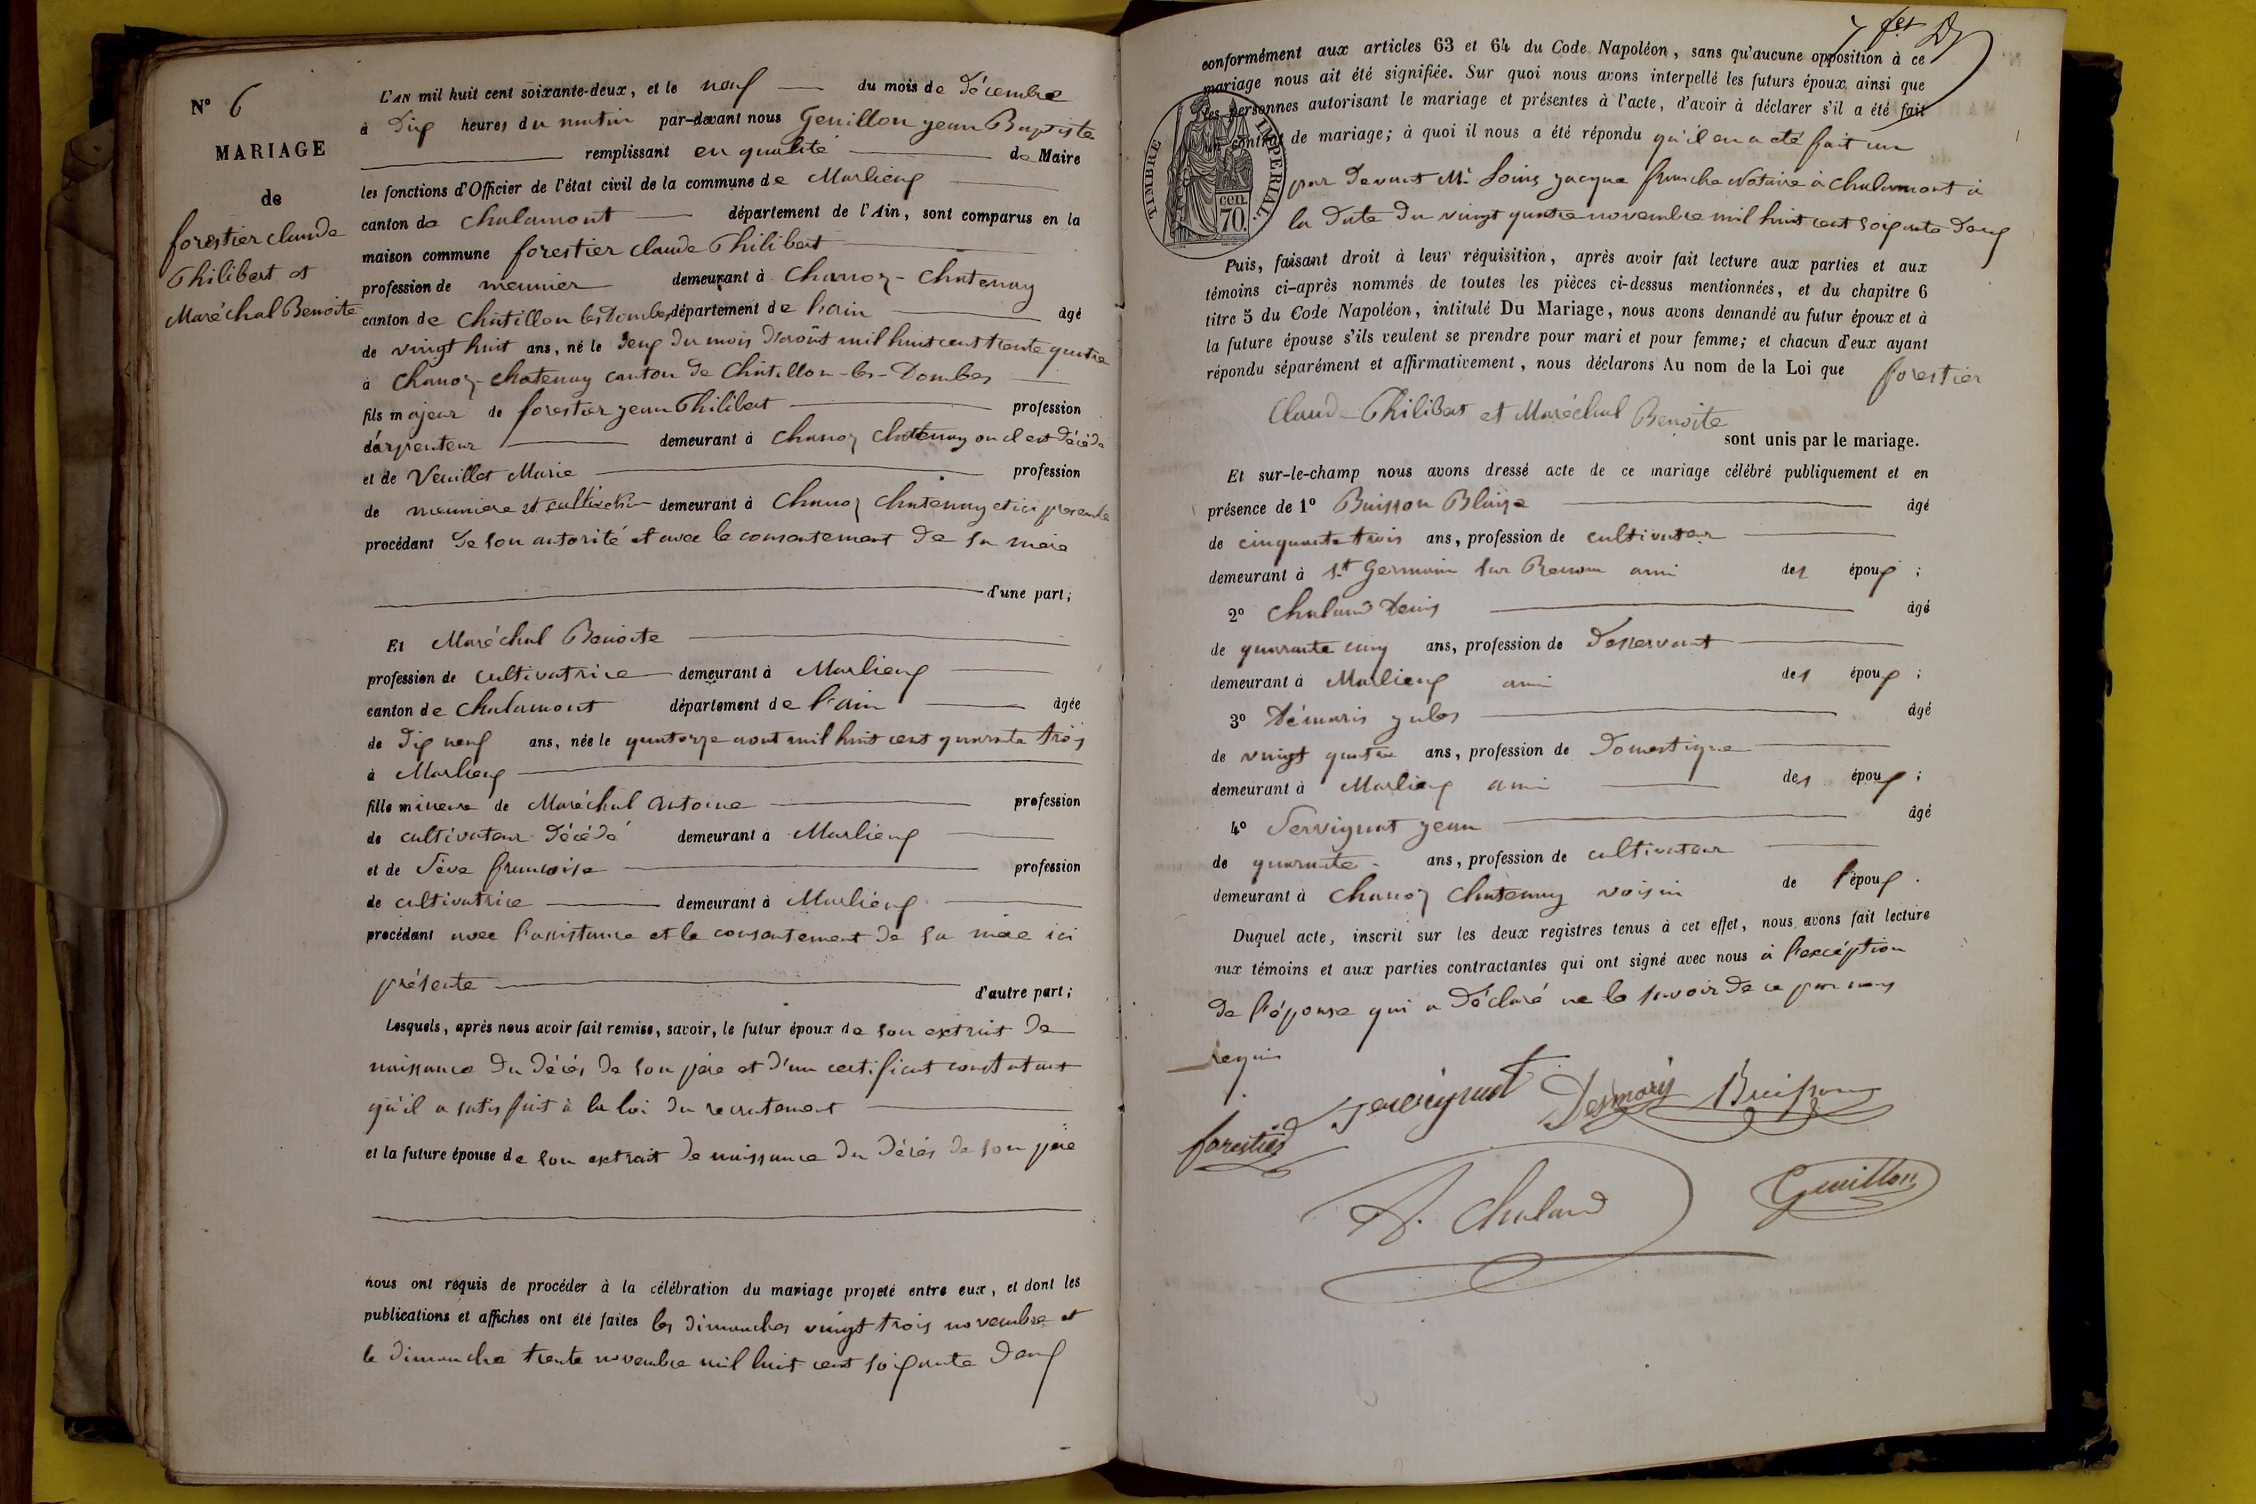 N° 6
MARIAGE
de
forestier claude
Philibert et
Maréchal Benoite
L'AN mil huit cent soixante-deux, et le neuf du mois de Décembre
à Dix heures du matin par-devant nous Genillon jean Baptiste
remplissant en qualité de Maire
les fonctions d'Officier de l'état civil de la commune de Marlieux
canton de chalamont département de l'Ain, sont comparus en la
maison commune forestier claude Philibert
profession de meunier demeurant à Chanoz-Chatenay
canton de Châtillon les Dombes département de l'ain âgé
de vingt huit ans, né le Deux Du mois D'août mil huit cent trente quatre
à Chanoz-chatenay canton de Châtillon-les-Dombes
fils majeur de forestier jean Philibert profession
d'arpenteur demeurant à Chanoz Chatenay ou il est Décédé
et de Veuillet Marie profession
de meuniere et cultivatrice demeurant à Chanoz Chatenay et ici presente
procédant De son autorité et avec le consentement De sa mère
d'une part;
Et Maréchal Benoite
profession de cultivatrice demeurant à Marlieux
canton de chalamont département de l'ain âgée
de Dix neuf ans, née le quatorze aout mil huit cent quarante trois
à Marlieux
fille mineure de Maréchal Antoine profession
de cultivateur Décédé demeurant à Marlieux
et de Sève francoise profession
de cultivatrice demeurant à Marlieux
procédant avec l'assistance et le consentement De sa mère ici
présente d'autre part;
Lesquels, après nous avoir fait remise, savoir, le futur époux de son extrait De
naissance Du Décés De son père et D'un certificat constatant
qu'il a satisfait à la loi Du recrutement
et la future épouse de son extrait De naissance Du Décés De son père
nous ont requis de procéder à la célébration du mariage projeté entre eux, et dont les
publications et affiches ont été faites les dimanches vingt trois novembre et
le Dimanche trente novembre mil huit cent soixante Deux
conformément aux articles 63 et 64 du Code Napoléon, sans qu'aucune opposition à ce
mariage nous ait été signifiée. Sur quoi nous avons interpellé les futurs époux, ainsi que
les personnes autorisant le mariage et présentes à l'acte, d'avoir à déclarer s'il a été fait
un contrat de mariage; à quoi il nous a été répondu qu'il en a été fait un
TIMBRE IMPERIAL.
70 cen.
par Devant Me Louis jacque franche Notaire à Chalamont à
la Date Du vingt quatre novembre mil huit cent soixante Deux
Puis, faisant droit à leur réquisition, après avoir fait lecture aux parties et aux
témoins ci-après nommés de toutes les pièces ci-dessus mentionnées, et du chapitre 6
titre 5 du Code Napoléon, intitulé Du Mariage, nous avons demandé au futur époux et à
la future épouse s'ils veulent se prendre pour mari et pour femme; et chacun d'eux ayant
répondu séparément et affirmativement, nous déclarons Au nom de la Loi que forestier
Claude Philibert et Maréchal Benoite
sont unis par le mariage.
Et sur-le-champ nous avons dressé acte de ce mariage célébré publiquement et en
présence de 1° Buisson Blaise âgé
de cinquante trois ans, profession de cultivateur
demeurant à St Germain sur Renom ami des époux;
2° Chaland Denis âgé
de quarante cinq ans, profession de Desservant
demeurant à Marlieux ami des époux;
3° Démaris jules âgé
de vingt quatre ans, profession de Domestique
demeurant à Marlieux ami des époux;
4° Servignat jean âgé
de quarante ans, profession de cultivateur
demeurant à Chanoz Chatenay voisin de l'époux.
Duquel acte, inscrit sur les deux registres tenus à cet effet, nous avons fait lecture
aux témoins et aux parties contractantes qui ont signé avec nous à l'exception
De l'épouse qui a Déclaré ne le savoir De ce par nous
requis
Servignat Desmaris Buisson
forestier
D. Chaland Genillon